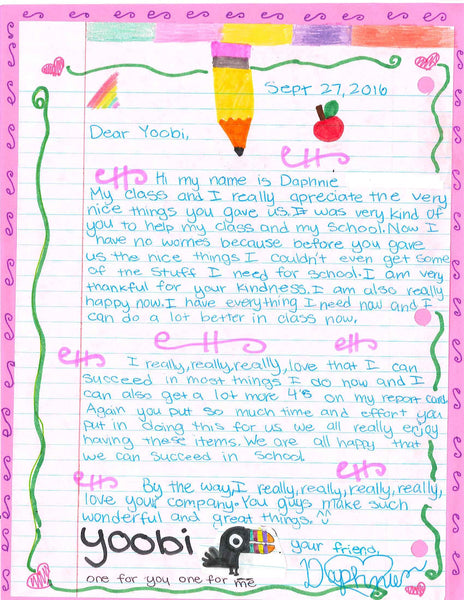 Sept 27, 2016
Dear Yoobi,
Hi my name is Daphnie
My class and I really apreciate the very
nice things you gave us. It was very kind of
you to help my class and my school. Now I
have no worries because before you gave
us the nice things I couldn't even get some
of the stuff I need for school. I am very
thankful for your kindness. I am also really
happy now. I have everything I need now and I
can do a lot better in class now.
I really, really, really, love that I can
succeed in most things I do now and I
can also get a lot more 4's on my report card.
Again you put so much time and effort you
put in doing this for us we all really enjoy
having these items. We are all happy that
we can succeed in school.
By the way, I really, really, really, really,
love your company. You guys make such
wonderful and great things. ^^
yoobi
your friend,
one for you one for me
Daphnie